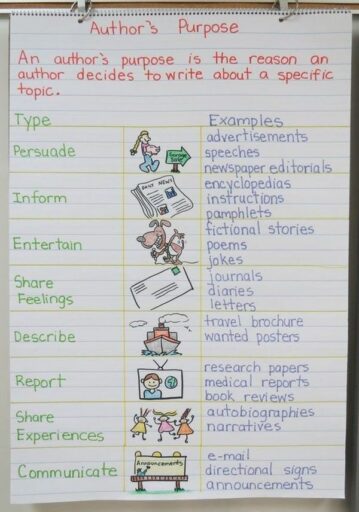 Author's Purpose
An author's purpose is the reason an
author decides to write about a specific
topic.
Type Examples
Persuade
Garage Sale
advertisements
speeches
newspaper editorials
Inform
DAILY NEWS
encyclopedias
instructions
pamphlets
Entertain
fictional stories
poems
jokes
Share
Feelings
journals
diaries
letters
Describe
travel brochure
wanted posters
Report
research papers
medical reports
book reviews
Share
Experiences
autobiographies
narratives
Communicate
Announcements
e-mail
directional signs
announcements